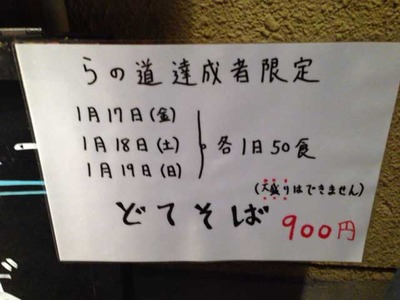 らの道達成者限定
1月17日(金)
1月18日(土)
1月19日(日)
各1日50食
(大盛りはできません)
どてそば
900円